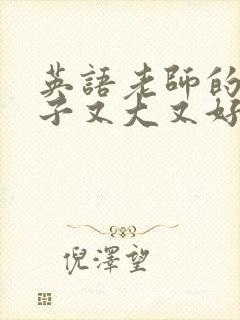 英語老師的
子又大又好
倪澤望